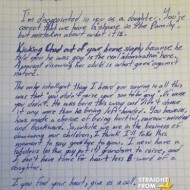 I'm disappointed in you as a daughter. You're
correct that we have a shame in the family,
but mistaken about what it is.
Kicking Chad out of your home simply because he
told you he was gay is the real abomination here.
A parent disowning her child is what goes against
nature.
The only intelligent thing I heard you saying in all this
was that you didn't raise your son to be gay. Of course
you didn't. He was born this way and didn't choose
it any more than he being left-handed. You however,
have made a choice of being hurtful, narrow-minded
and backward. So, while we are in the business of
disowning our children, I think I'll take this
moment to say goodbye to you. I now have a
fabulous (as the gays put it) grandson to raise, and
I don't have time for heart-less B-word of a
daughter.
If you find your heart, give us a call.
STRAIGHT
FROM